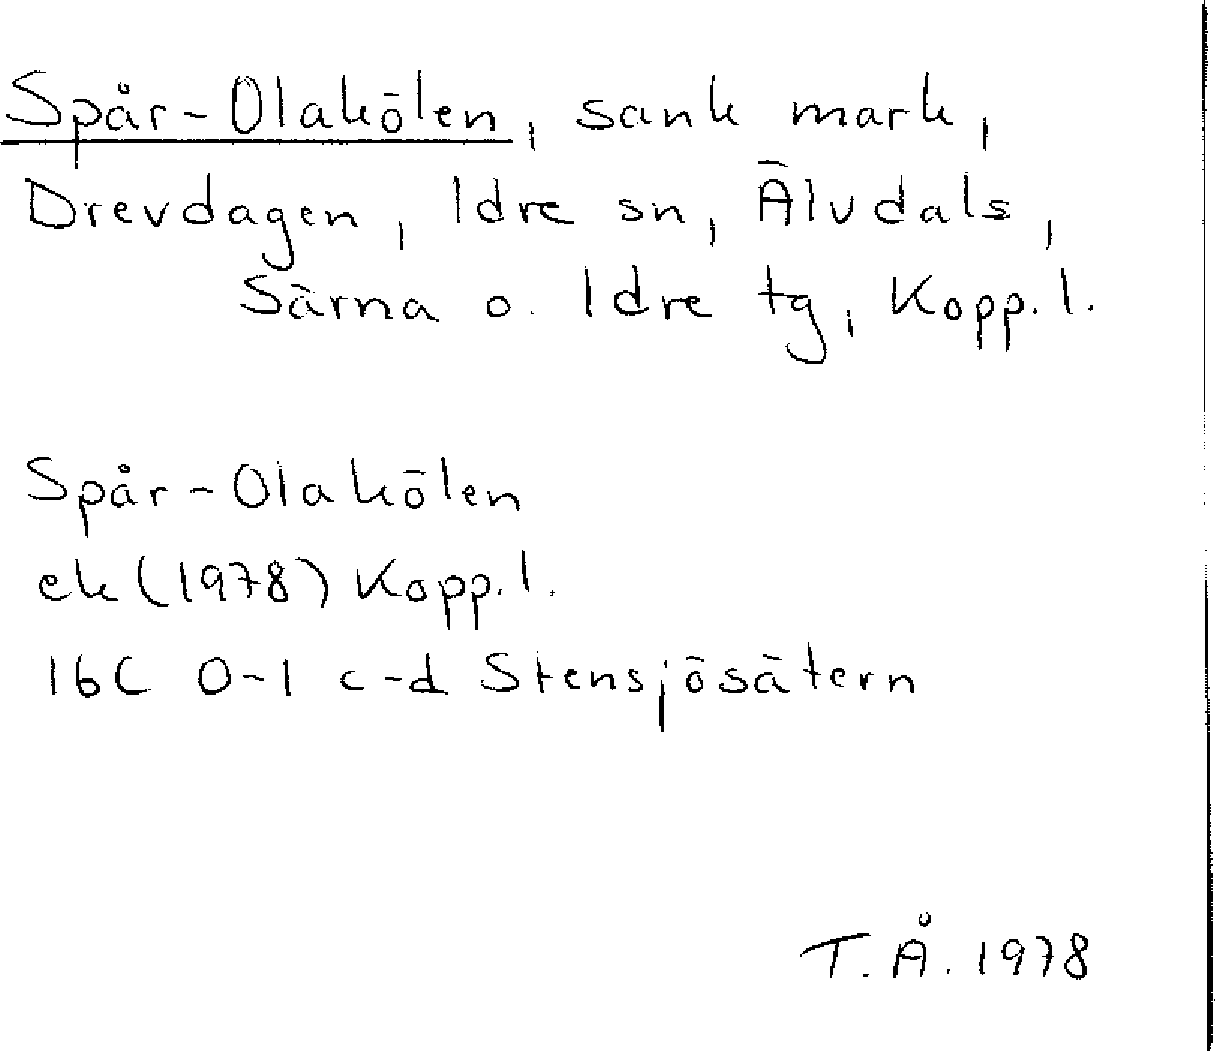 Spår-Olakölen, sank mark,
Drevdagen, Idre sn, Älvdals,
Särna o. Idre tg, Kopp. l.
Spår-Olakölen
ek (1978) Kopp. l.
16C 0-1 c-d Stensjösätern
T. Å. 1978